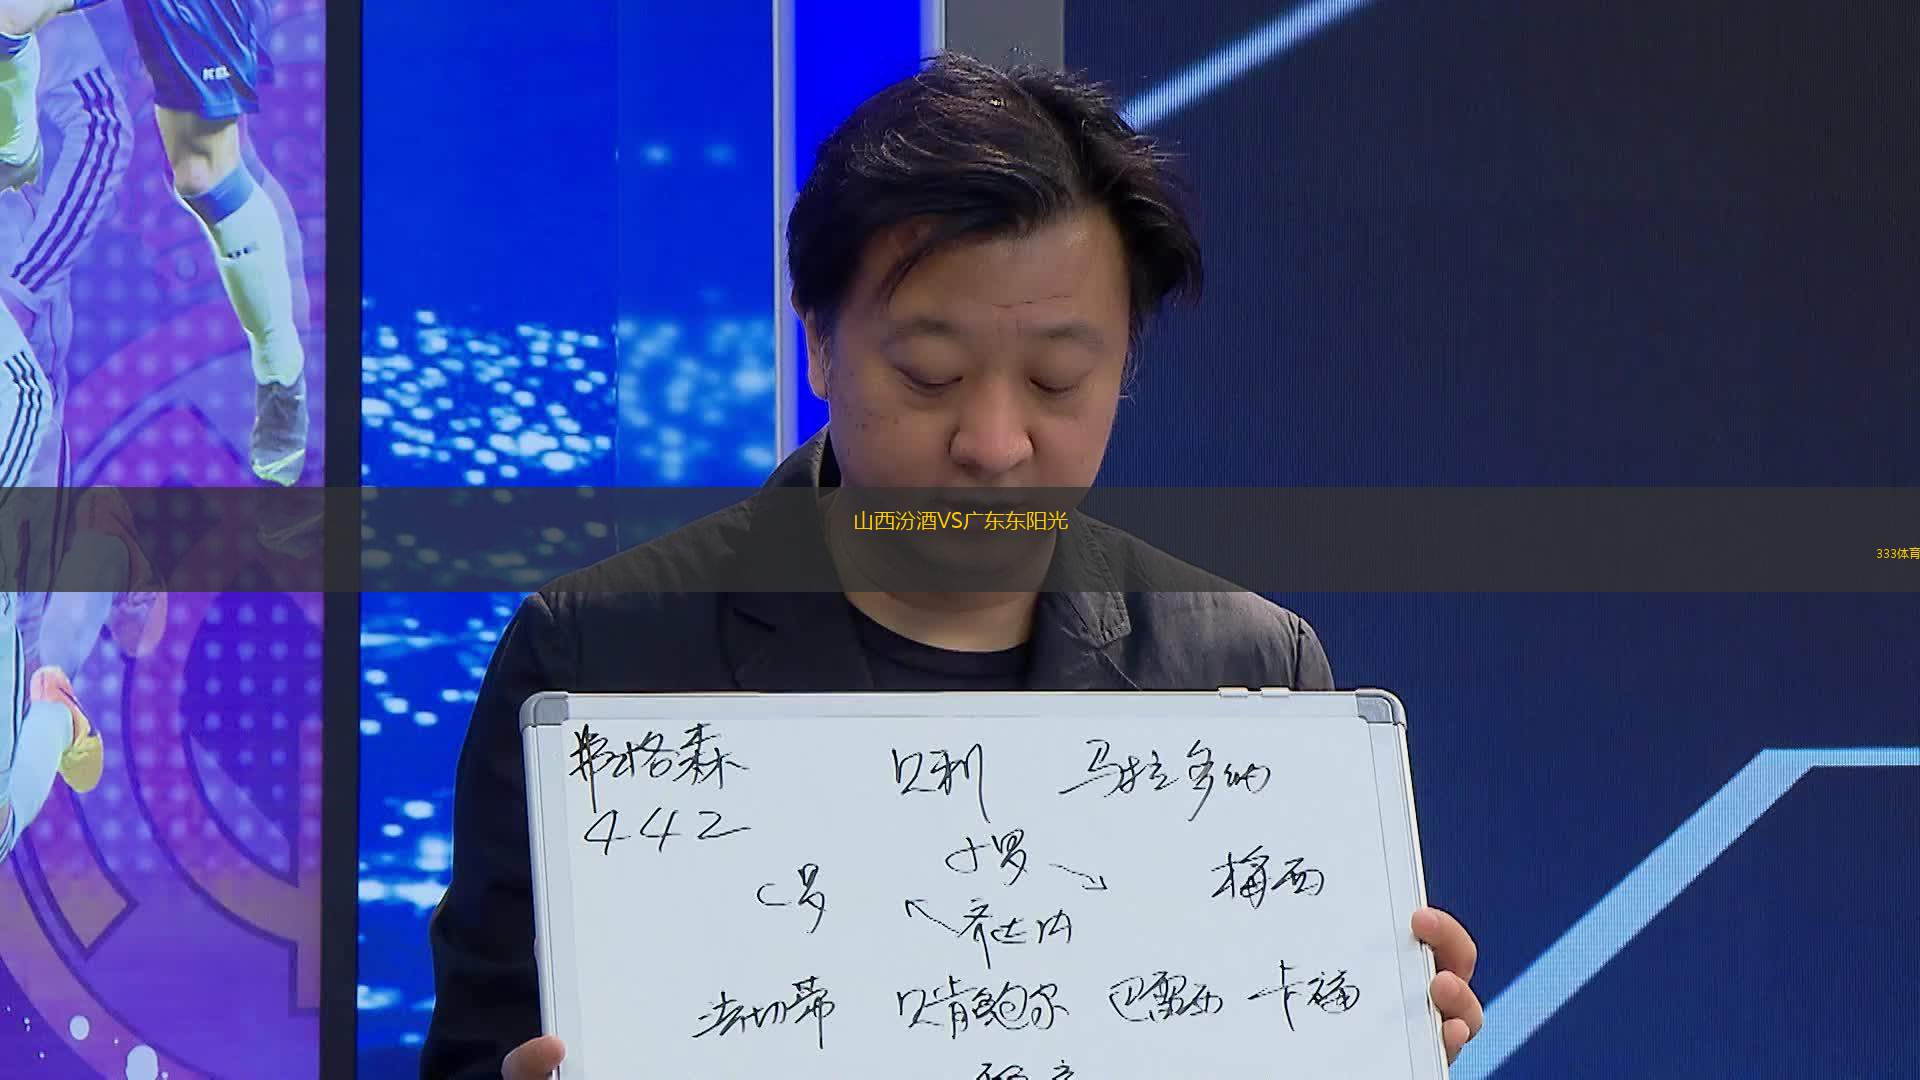 山西汾酒VS广东东阳光
333体育
弗格森 贝利 马拉多纳
442
小罗
C罗 梅西
齐达内
法切蒂 贝肯鲍尔 巴雷西 卡福